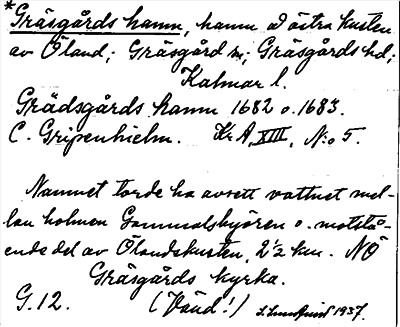 *Gräsgårds hamn, hamn å östra kusten
av Öland; Gräsgård sn; Gräsgårds hd;
Kalmar l.
Grädsgårds hamn 1682 o. 1683.
C. Gripenhielm. Kr A, XIII, N:o 5.
Namnet torde ha avsett vattnet mel-
lan holmen Gammalsbyören o. motstå-
ende del av Ölandskusten, 2 ½ km. NÖ
Gräsgårds kyrka.
G. 12. (Vänd!) 1937.